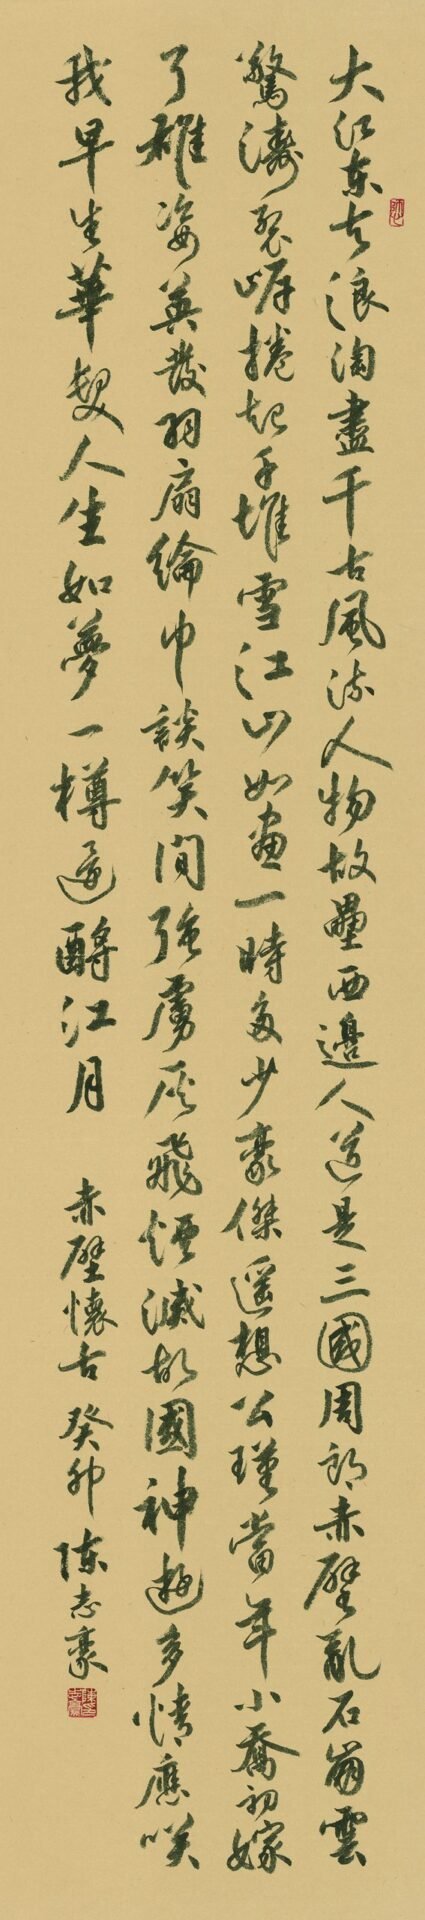 大江东去浪淘盡千古風流人物故壘西邊人道是三國周郎赤壁亂石崩雲
驚濤裂岸捲起千堆雪江山如畫一時多少豪傑遥想公瑾當年小喬初嫁
了雄姿英發羽扇綸巾談笑間強虜灰飛煙滅故國神遊多情應笑
我早生華髮人生如夢一樽還酹江月 赤壁懷古 癸卯 陈志豪